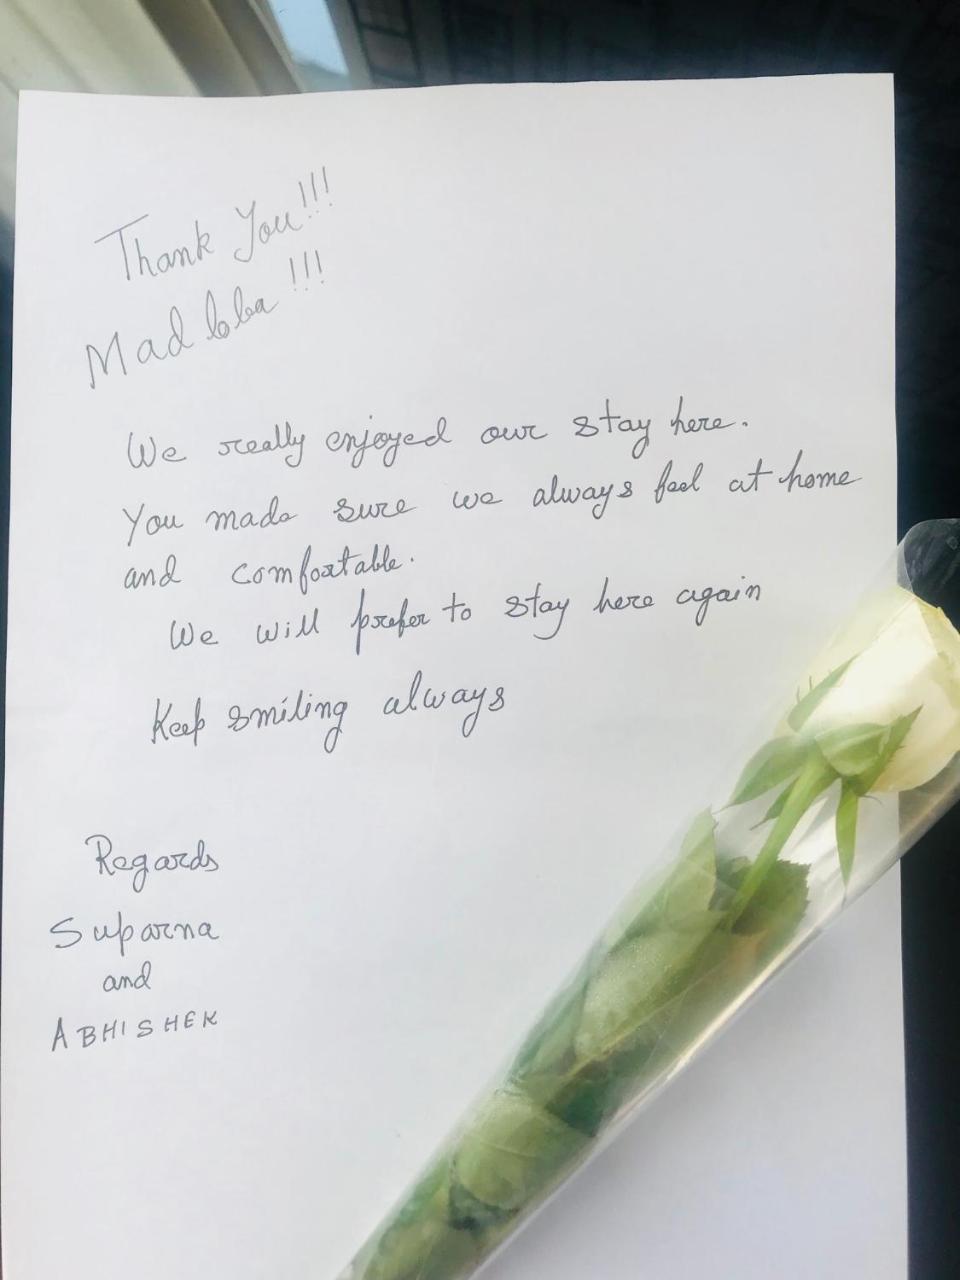 Thank You!!!
Madloba !!!
We really enjoyed our stay here.
You made sure we always feel at home
and comfortable.
We will prefer to stay here again
Keep smiling always
Regards
Suparna
and
ABHISHEK